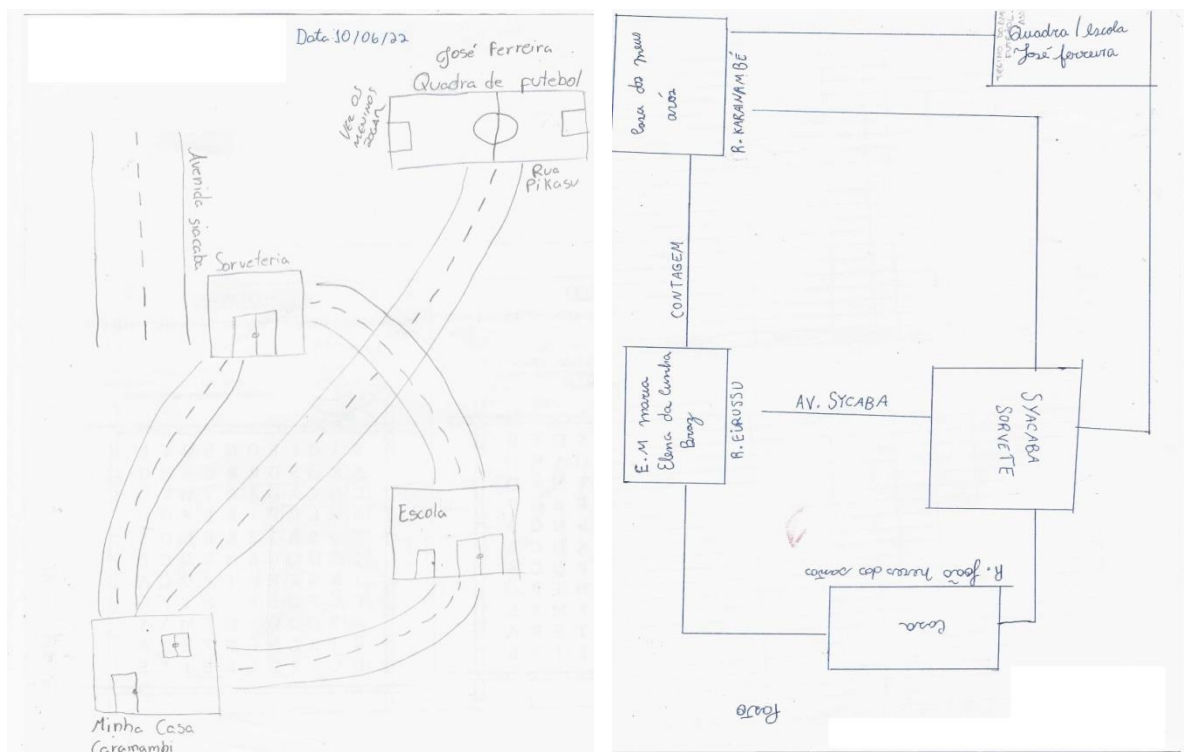 Data 10/06/22
José Ferreira
Quadra de futebol
VER OS
MENINOS
JOGAR
Rua
Pikasu
Avenida siacaba
Sorveteria
Escola
Minha Casa
Caramambi
Quadra/escola
José ferreira
Casa dos meus
avós
R. KARANAMBÉ
CONTAGEM
E.M maria
Elena da Cunha
Braz
R. EIRUSSU
AV. SYCABA
SYACABA
SORVETE
R. João neres dos santos
Casa